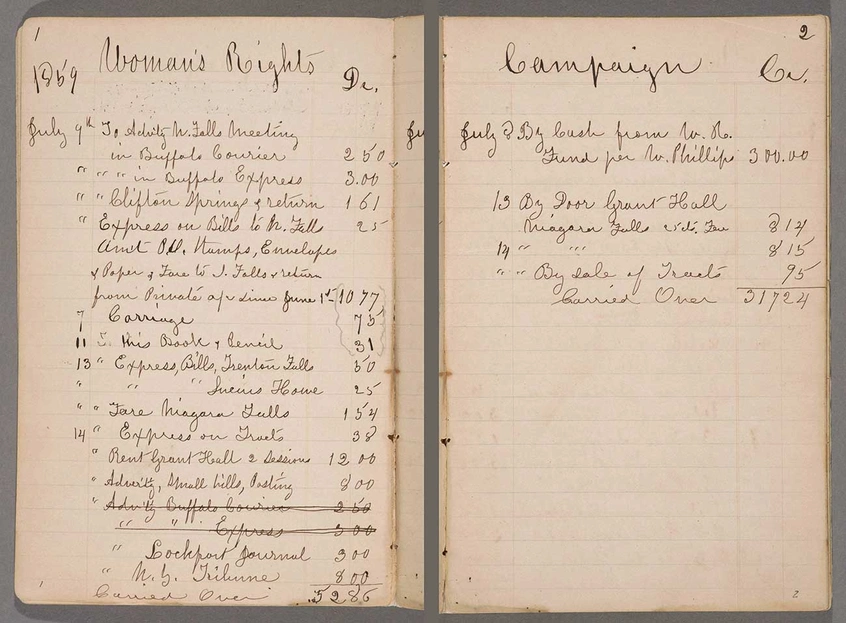 1
Woman's Rights
1859 Dr.
July 9th To Advtg N. Falls Meeting
in Buffalo Courier 2 50
" " " in Buffalo Express 3.00
" " Clifton Springs & return 1 61
" Express on Bills to N. Falls 25
Amt Pd. Stamps, Envelopes
& Paper & Fare to N. Falls & return
from Private a/c since June 1st 10 77
7 Carriage 75
11 To this Book & Pencil 31
13 " Express, Bills, Trenton Falls 50
" " " Lucius Howe 25
" " Fare Niagara Falls 1 54
14 " Express on Tracts 38
" Rent Grant Hall 2 Sessions 12 00
" Advertg, small bills, Posting 8 00
" Advtg Buffalo Courier 2 50
" " Express 3 00
" Lockport Journal 3 00
" N.Y. Tribune 8 00
Carried Over 52 86
1
2
Campaign
Cr.
July 8 By Cash from W. R.
Fund per W. Phillips 300.00
13 By Door Grant Hall
Niagara Falls 8 14
14 " " " 8 15
" " By sale of Tracts 95
Carried Over 317 24
2